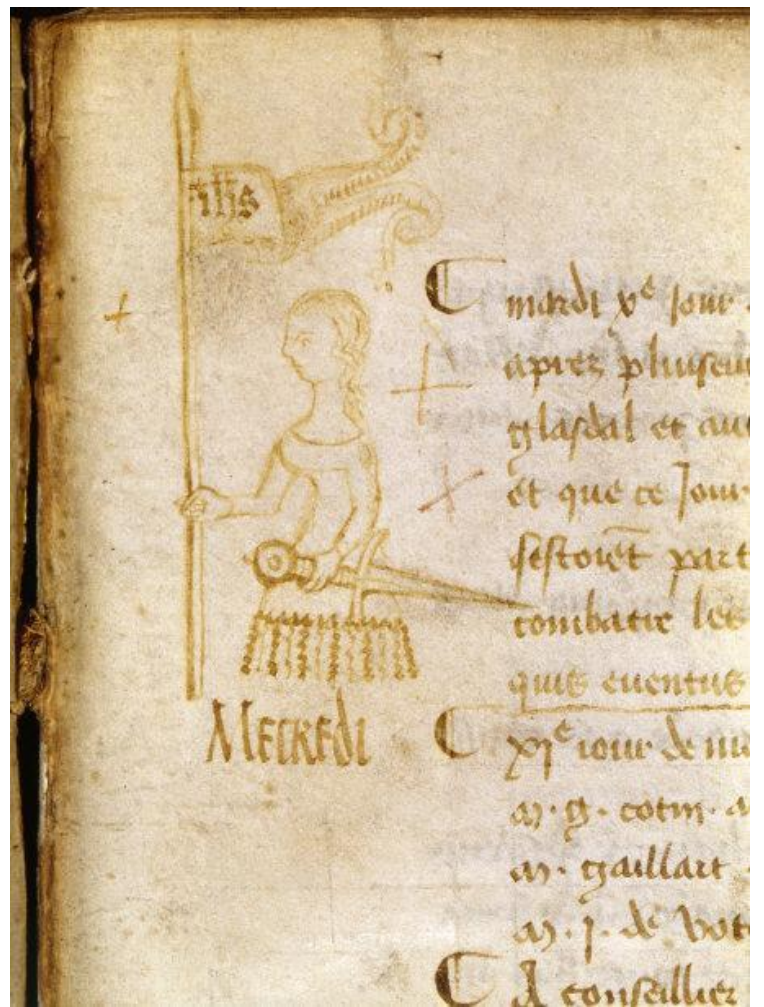 ihs
mardi xe jour
apres pluiseu
glasdal et au
et que ce Jour
sestoiēt part
combatre les
quis euentus
Mecredi
xje iour de ma
m. g. cotin.
m. gaillart
m. j. de
A conseillier